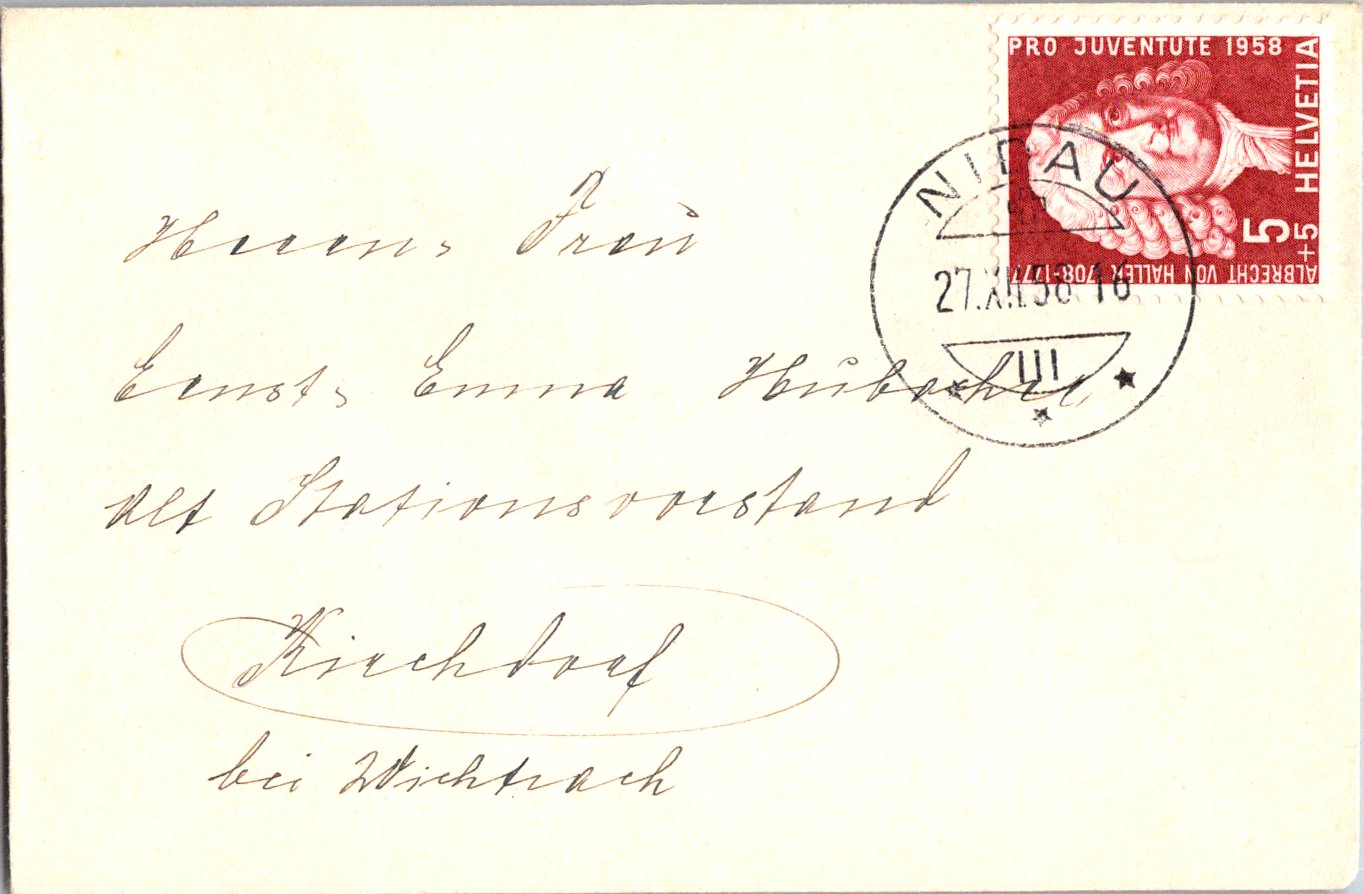 PRO JUVENTUTE 1958
HELVETIA
5+5
ALBRECHT VON HALLER 1708-1777
NIDAU
27.XII.58-16
Herrn, Frau
Ernst, Emma Hubacher
alt Stationsvorstand
Kirchdorf
bei Wichtrach